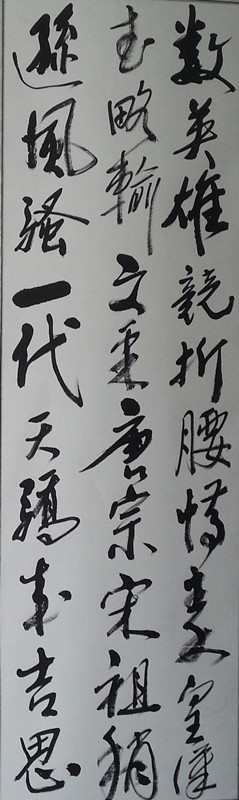 数英雄競折腰惜秦皇漢
武略輸文采唐宗宋祖稍
遜風騷一代天驕成吉思